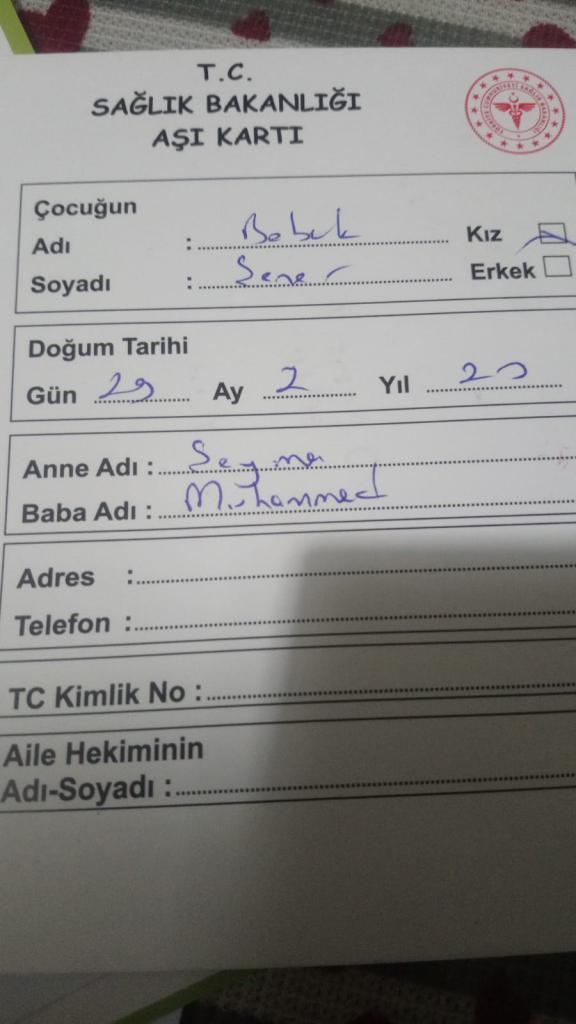 T.C.
SAĞLIK BAKANLIĞI
AŞI KARTI
Çocuğun
Adı : Bebek Kız
Soyadı : Şener Erkek
Doğum Tarihi
Gün 29 Ay 2 Yıl 20
Anne Adı : Şeyma
Baba Adı : Muhammed
Adres :
Telefon :
TC Kimlik No :
Aile Hekiminin
Adı-Soyadı :